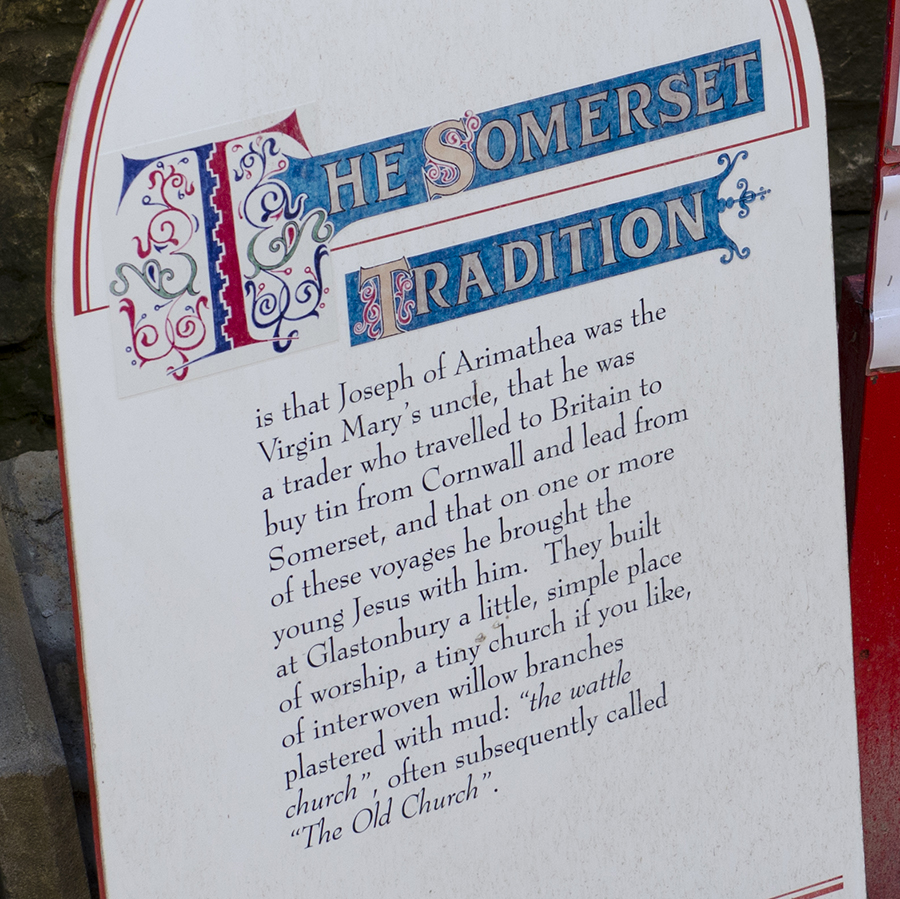 THE SOMERSET
TRADITION
is that Joseph of Arimathea was the
Virgin Mary's uncle, that he was
a trader who travelled to Britain to
buy tin from Cornwall and lead from
Somerset, and that on one or more
of these voyages he brought the
young Jesus with him. They built
at Glastonbury a little, simple place
of worship, a tiny church if you like,
of interwoven willow branches
plastered with mud: “the wattle
church”, often subsequently called
“The Old Church”.